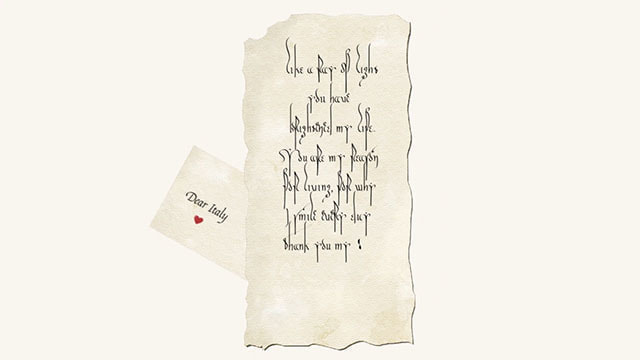 Like a ray of light
you have
brightened my life.
You are my reason
for living, for why
I smile every day
thank you my :
Dear Italy